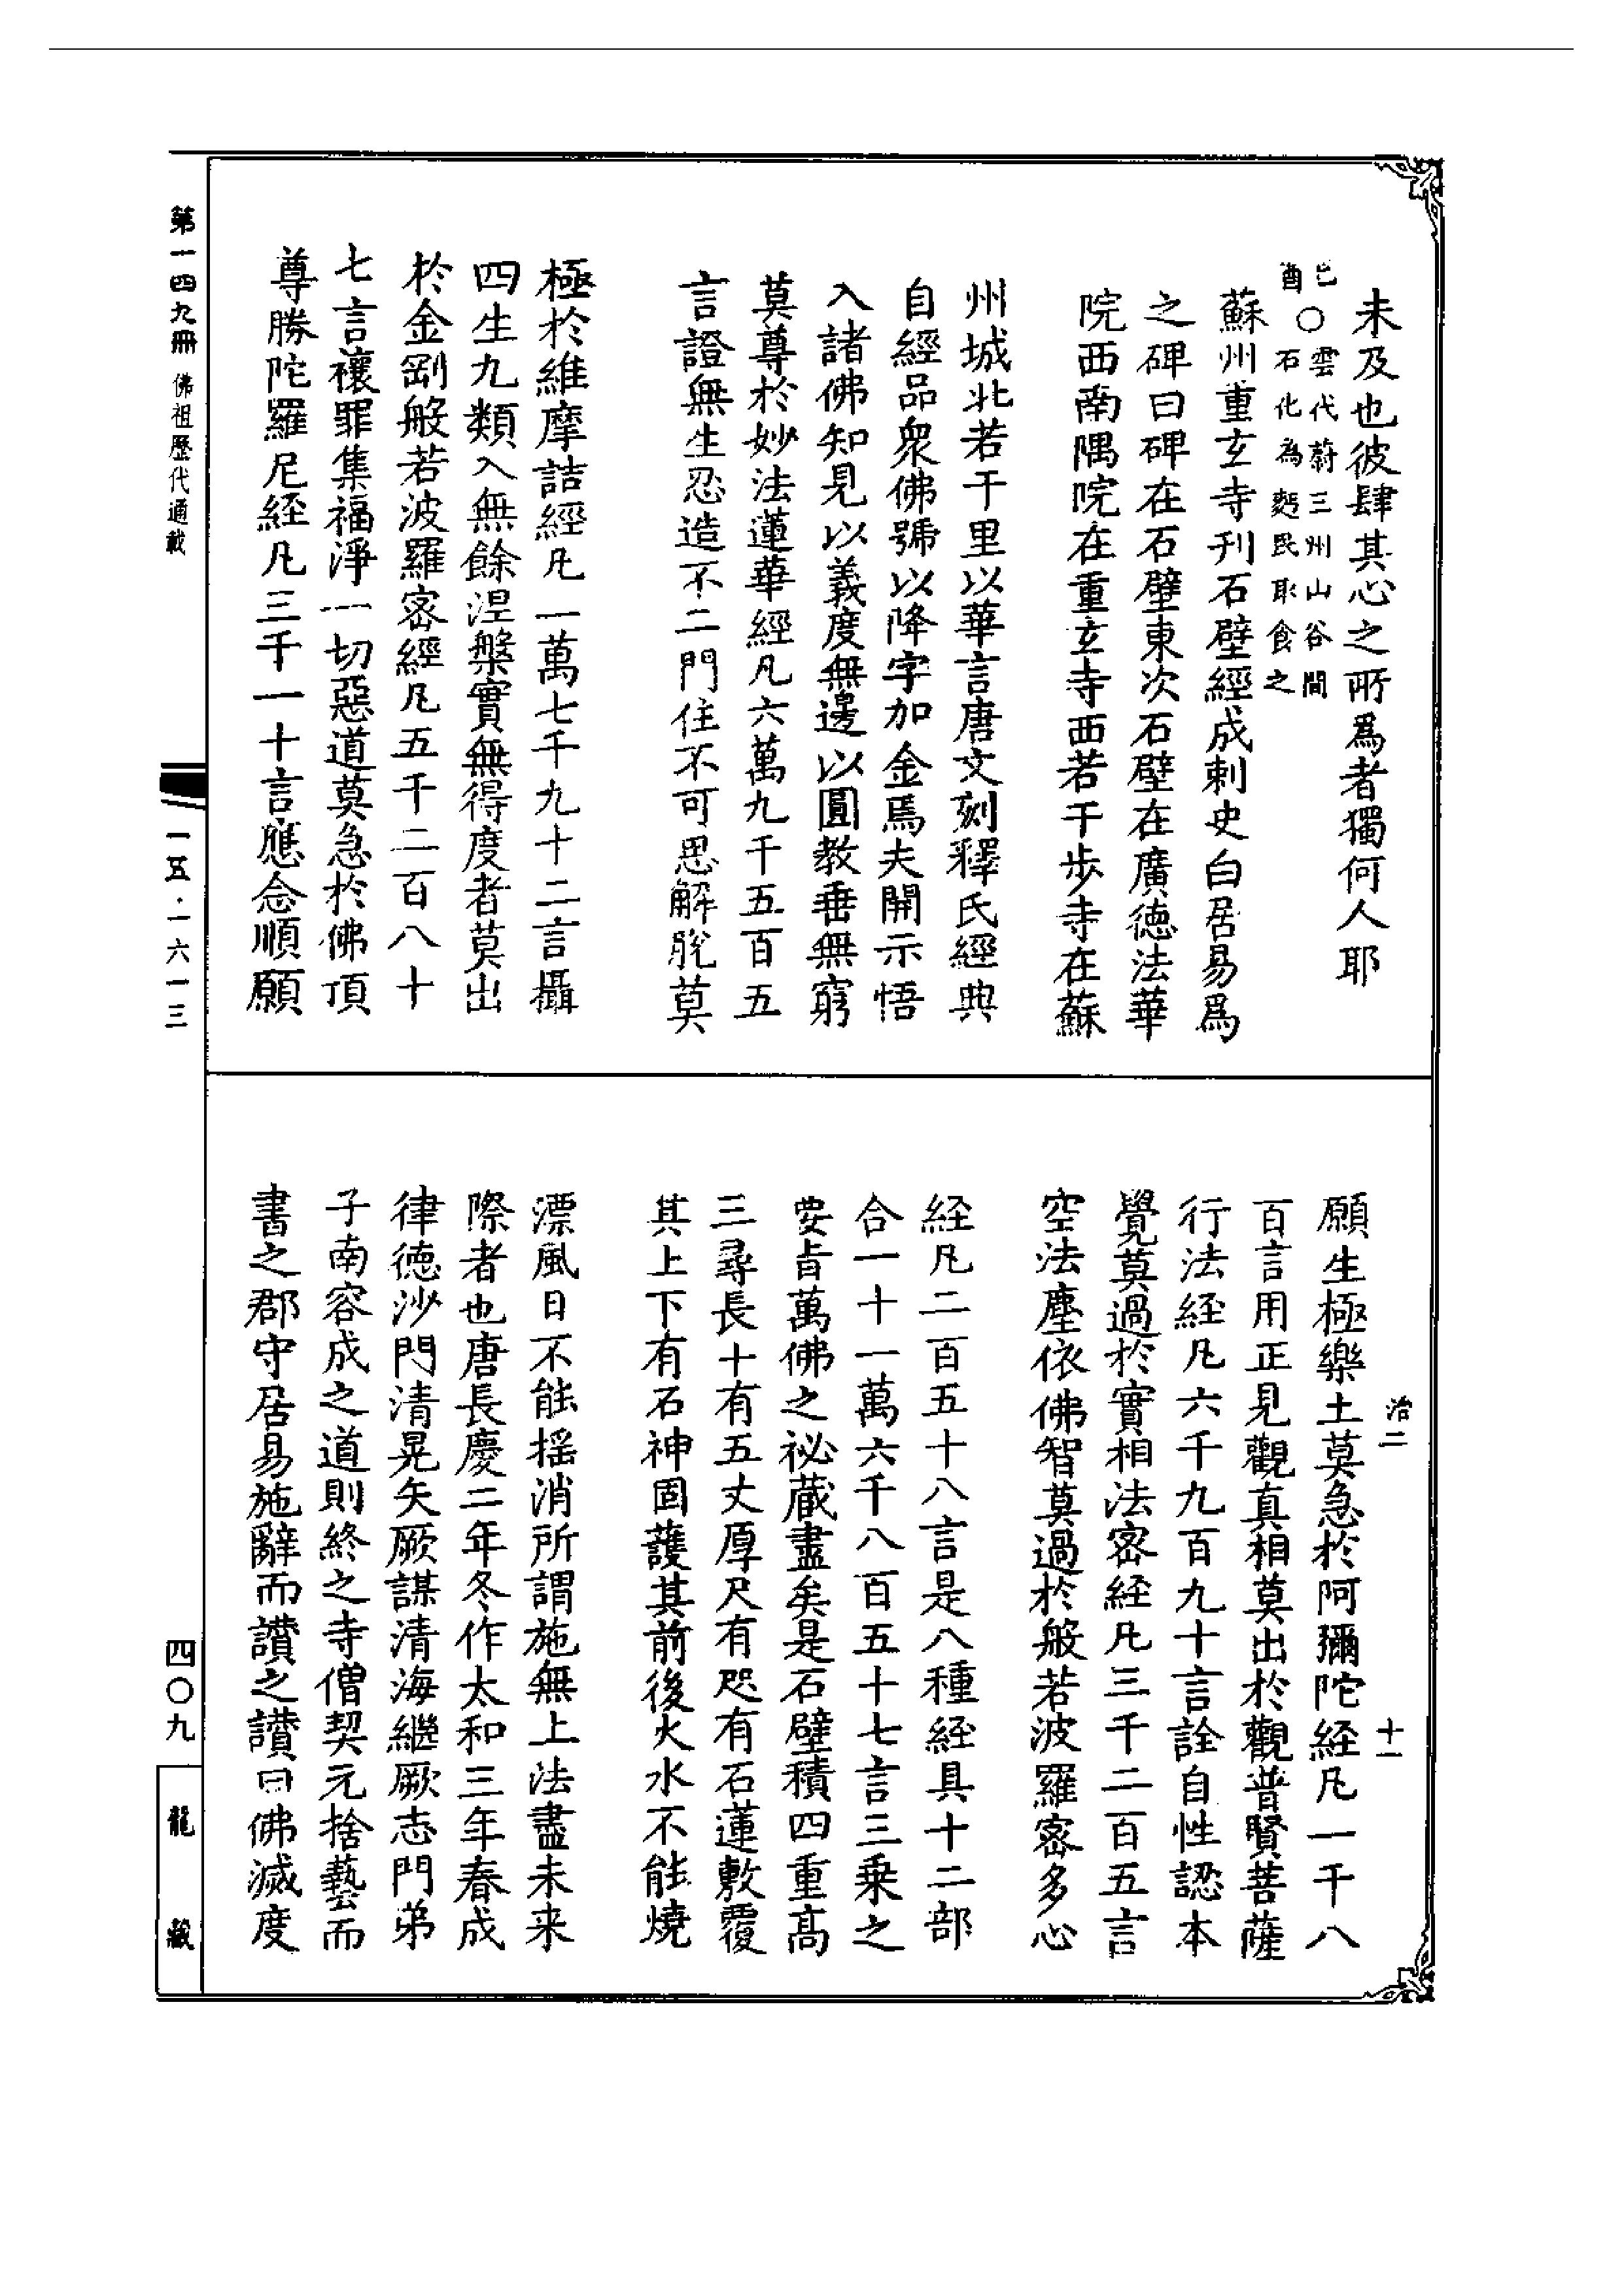 未及也彼肆其心之所爲者獨何人耶
己酉〇雲代蔚三州山谷間石化為麪民取食之
蘇州重玄寺刋石壁經成刺史白居易爲
之碑曰碑在石壁東次石壁在廣德法華
院西南隅院在重玄寺西若干步寺在蘇
州城北若干里以華言唐文刻釋氏經典
自經品衆佛號以降字加金焉夫開示悟
入諸佛知見以義度無邊以圓教垂無窮
莫尊於妙法蓮華經凡六萬九千五百五
言證無生忍造不二門住不可思解脫莫
極於維摩詰經凡一萬七千九十二言攝
四生九類入無餘涅槃實無得度者莫出
於金剛般若波羅密經凡五千二百八十
七言禳罪集福淨一切惡道莫急於佛頂
尊勝陀羅尼経凡三千一十言應念順願
治二
十一
願生極樂土莫急於阿彌陀経凡一千八
百言用正見觀真相莫出於觀普賢菩薩
行法経凡六千九百九十言詮自性認本
覺莫過於實相法密経凡三千二百五言
空法塵依佛智莫過於般若波羅密多心
経凡二百五十八言是八種経具十二部
合一十一萬六千八百五十七言三乗之
要旨萬佛之祕蔵盡矣是石壁積四重髙
三尋長十有五丈厚尺有咫有石蓮敷覆
其上下有石神固護其前後火水不能燒
漂風日不能揺消所謂施無上法盡未来
際者也唐長慶二年冬作太和三年春成
律德沙門清晃矢厥謀清海継厥志門弟
子南容成之道則終之寺僧契元捨藝而
書之郡守居易施辭而讃之讃曰佛滅度
第一四九冊 佛祖歷代通載
一五·一六一三
四〇九
龍藏